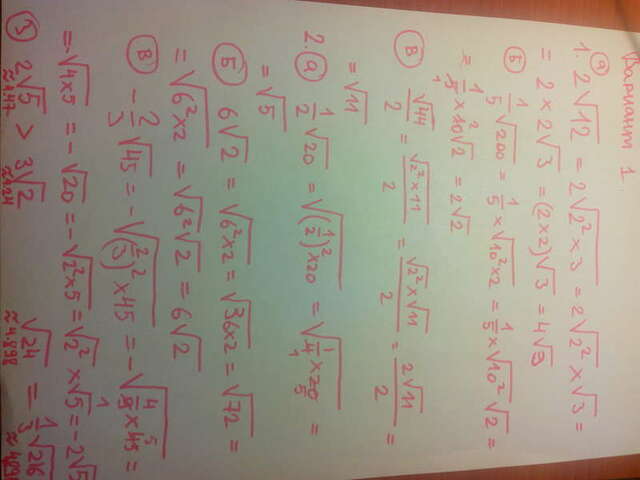 Вариант 1
а
1. 2√12 = 2√2² × 3 = 2√2² × √3 =
= 2 × 2√3 = (2×2)√3 = 4√3
Б 1/5 √200 = 1/5 × √10² × 2 = 1/5 × √10² √2 =
= 1/5 × 10√2 = 2√2
В √44/2 = √2² × 11/2 = √2² × √11/2 = 2√11/2 =
= √11
2. а 1/2 √20 = √(1/2)² × 20 = √1/4 × 20 =
= √5
Б 6√2 = √6² × 2 = √36×2 = √72 =
= √6² × 2 = √6² √2 = 6√2
В - 2/3 √45 = - √(2/3)² × 45 = - √4/9 × 45 =
= -√4×5 = -√20 = -√2² × 5 = √2² × √5 = -2√5
3 2√5 > 3√2 √24 = 1/3 √216
≈ 4.47 ≈ 4.24 ≈ 4.898